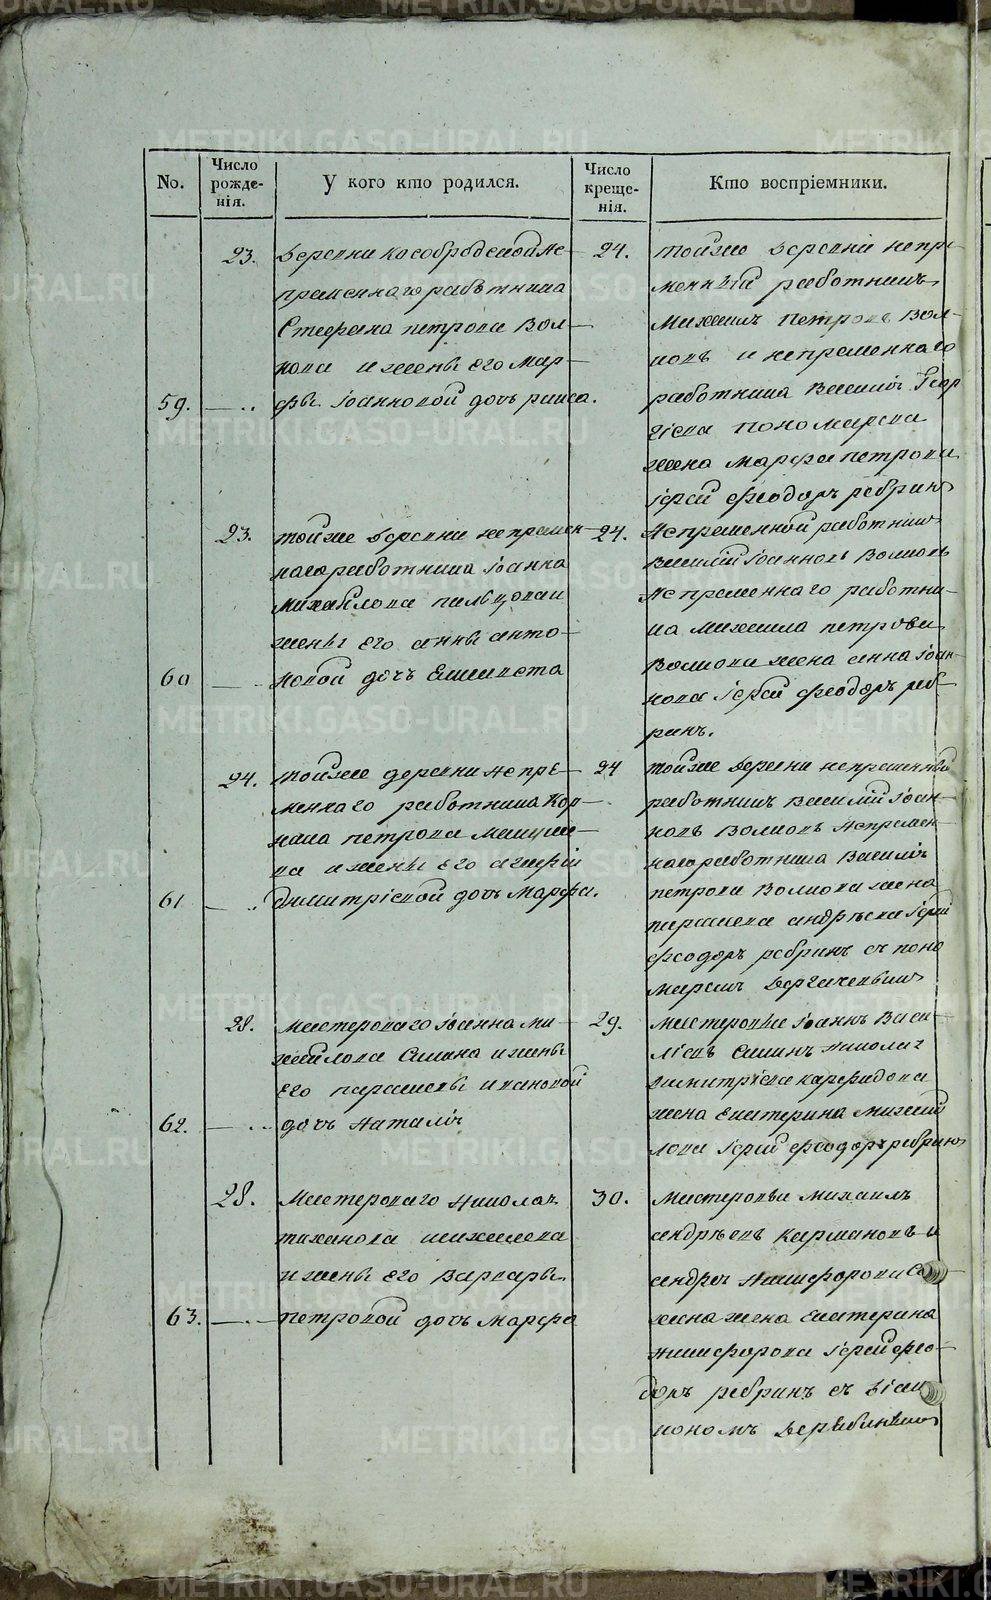 No.
Число
рожде-
нія.
У кого кто родился.
Число
креще-
нія.
Кто воспріемники.
23.
Деревни Кособродской не-
пременнаго работника
Стефана петрова Вол-
кова и жены его Мар-
59.
фы Іоанновой дочь раиса.
24.
тойже деревни непре-
менный работникъ
Михаилъ петровъ Вол-
ковъ и непременнаго
работника Василія Геор
гіева пономарева
жена марфа петрова
іерей феодоръ ребринъ
23.
тойже деревни непремен-
наго работника Іоанна
михайлова пальцова и
жены его анны анто-
60
новой дочь Елисавета
24.
непременной работникъ
Василій Іоанновъ Волковъ
непременнаго работни-
ка михаила петрова
Волкова жена анна Іоан-
нова іерей феодоръ реб-
ринъ.
24.
тойже деревни непре-
меннаго работника Кор-
нила петрова
и жены его
61
димитріевой дочь Марфа.
24
тойже деревни непременный
работникъ Василій Іоан-
новъ Волковъ непремен-
наго работника Василія
петрова Волкова жена
параскева андреева іерей
феодоръ ребринъ съ поно
маремъ
28.
мастероваго Іоанна ми-
хайлова и жены
его параскевы ивановой
62.
дочь наталія
29.
мастеровые Іоаннъ Васи-
ліевъ николая
димитріева
жена Екатерина михай
лова іерей феодоръ ребринъ
28.
мастероваго николая
и жены его Варвары
63.
петровой дочь марфа
30.
мастеровые михаилъ
андреевъ кармановъ и
андрея никифорова
жена Екатерина
никифорова іерей фео-
доръ ребринъ съ діак
кономъ